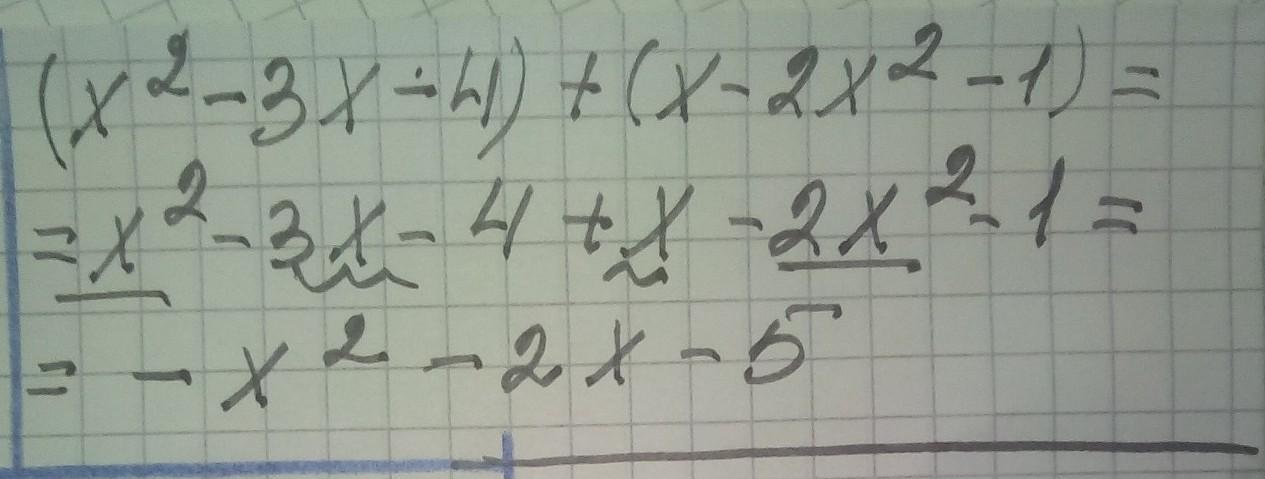 (x² - 3x - 4) + (x - 2x² - 1) =
= x² - 3x - 4 + x - 2x² - 1 =
= - x² - 2x - 5